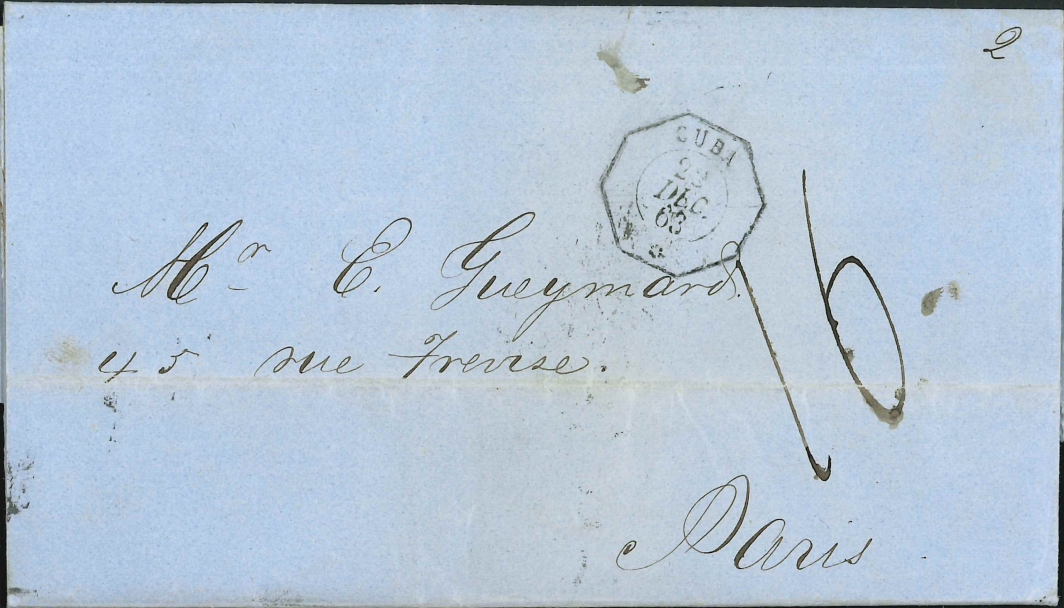 2
CUBA
DEC.
63
Mr E. Gueymard.
45 rue Trevise.
16
Paris